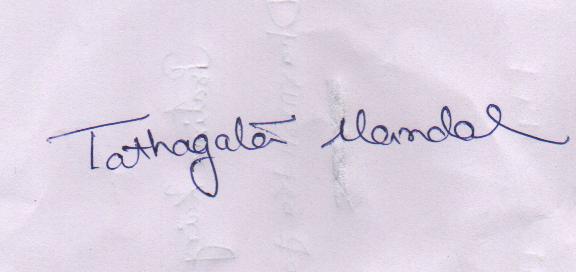 Tathagata Mandal